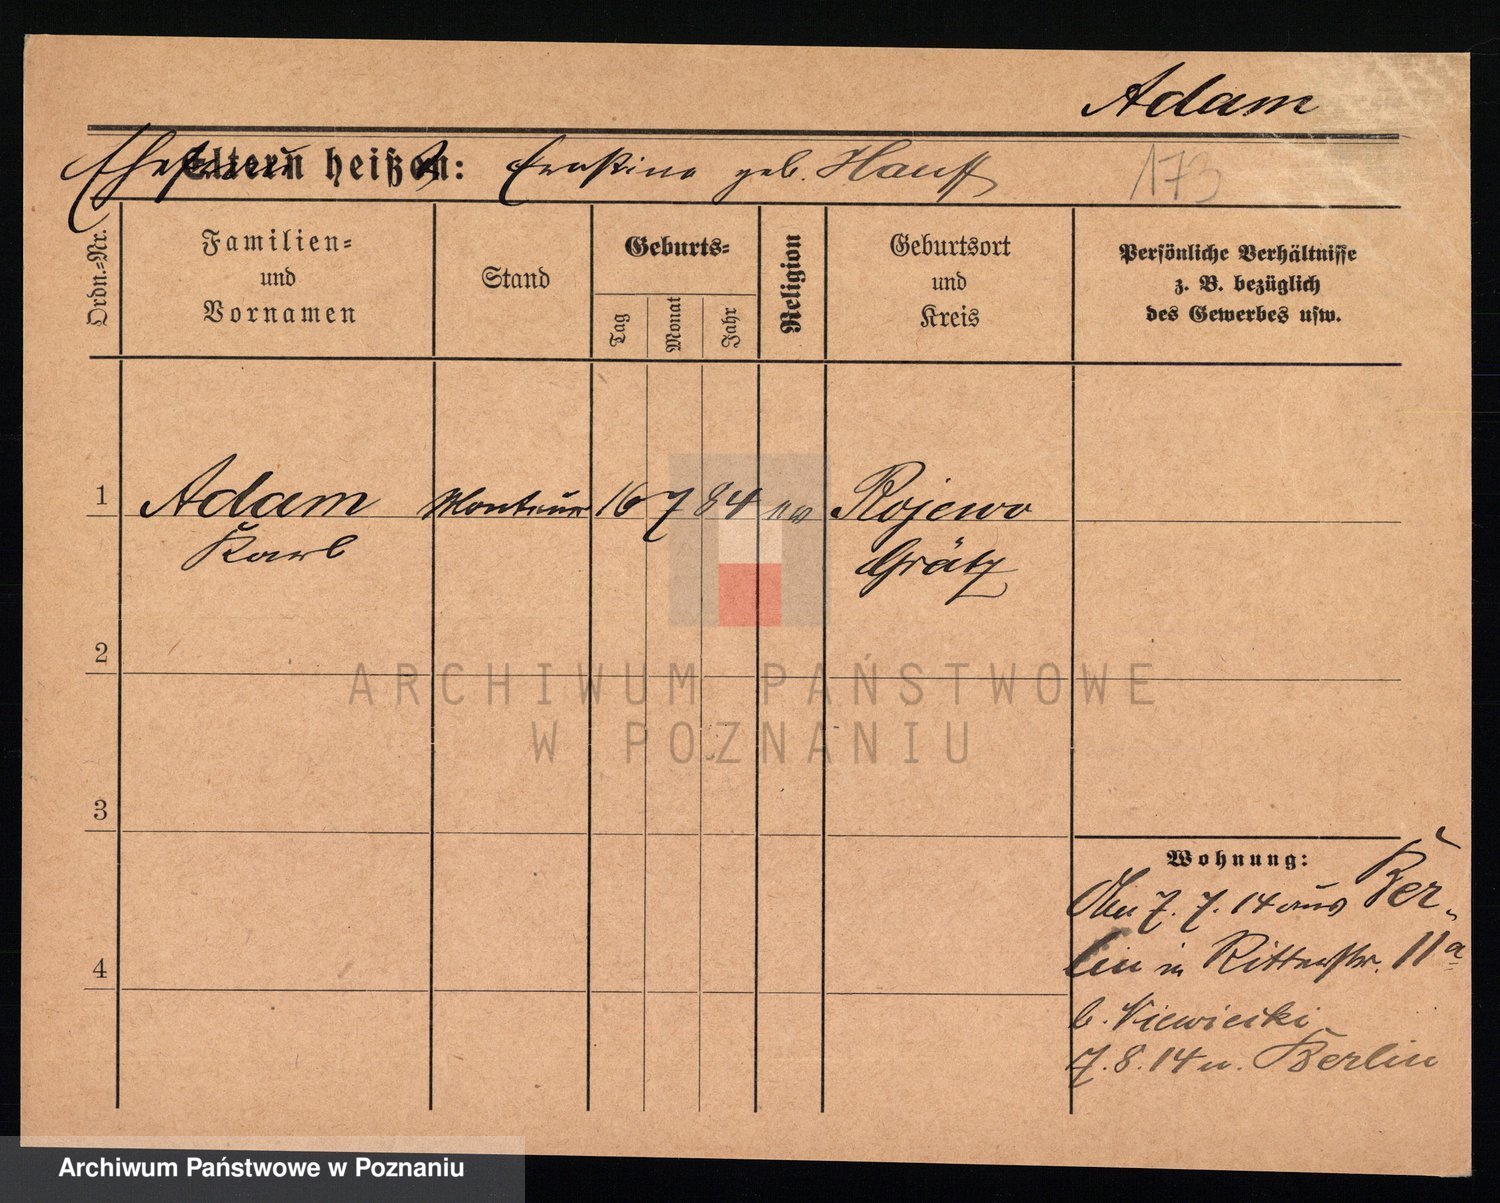 Adam
Eltern heißen:
Ehefrau
geb. Hauff
173
Ordn.-Nr.
Familien-
und
Vornamen
Stand
Geburts-
Tag
Monat
Jahr
Religion
Geburtsort
und
Kreis
Persönliche Verhältnisse
z. B. bezüglich
des Gewerbes usw.
1 Adam Monteur 16 7 84 Rojewo
Karl Grätz
2
3
4
Wohnung:
7. 7. 14 aus Ber-
lin in Ritterstr. 11a
b. Niewiecki
7. 8. 14 n. Berlin
ARCHIWUM PAŃSTWOWE
W POZNANIU
Archiwum Państwowe w Poznaniu